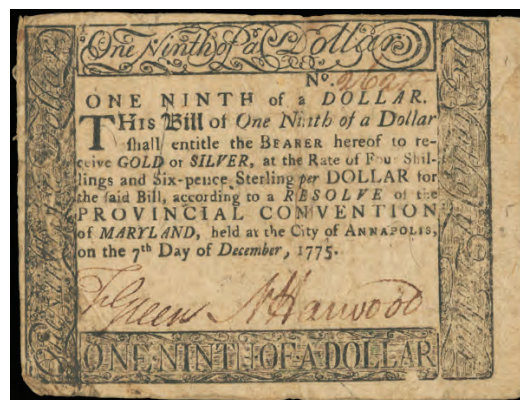 One Ninth of a Dollar
No.
ONE NINTH of a DOLLAR.
THIS Bill of One Ninth of a Dollar
shall entitle the BEARER hereof to re-
ceive GOLD or SILVER, at the Rate of Four Shil-
lings and Six-pence Sterling per DOLLAR for
the said Bill, according to a RESOLVE of the
PROVINCIAL CONVENTION
of MARYLAND, held at the City of ANNAPOLIS,
on the 7th Day of December, 1775.
F Green N Harwood
ONE NINTH OF A DOLLAR